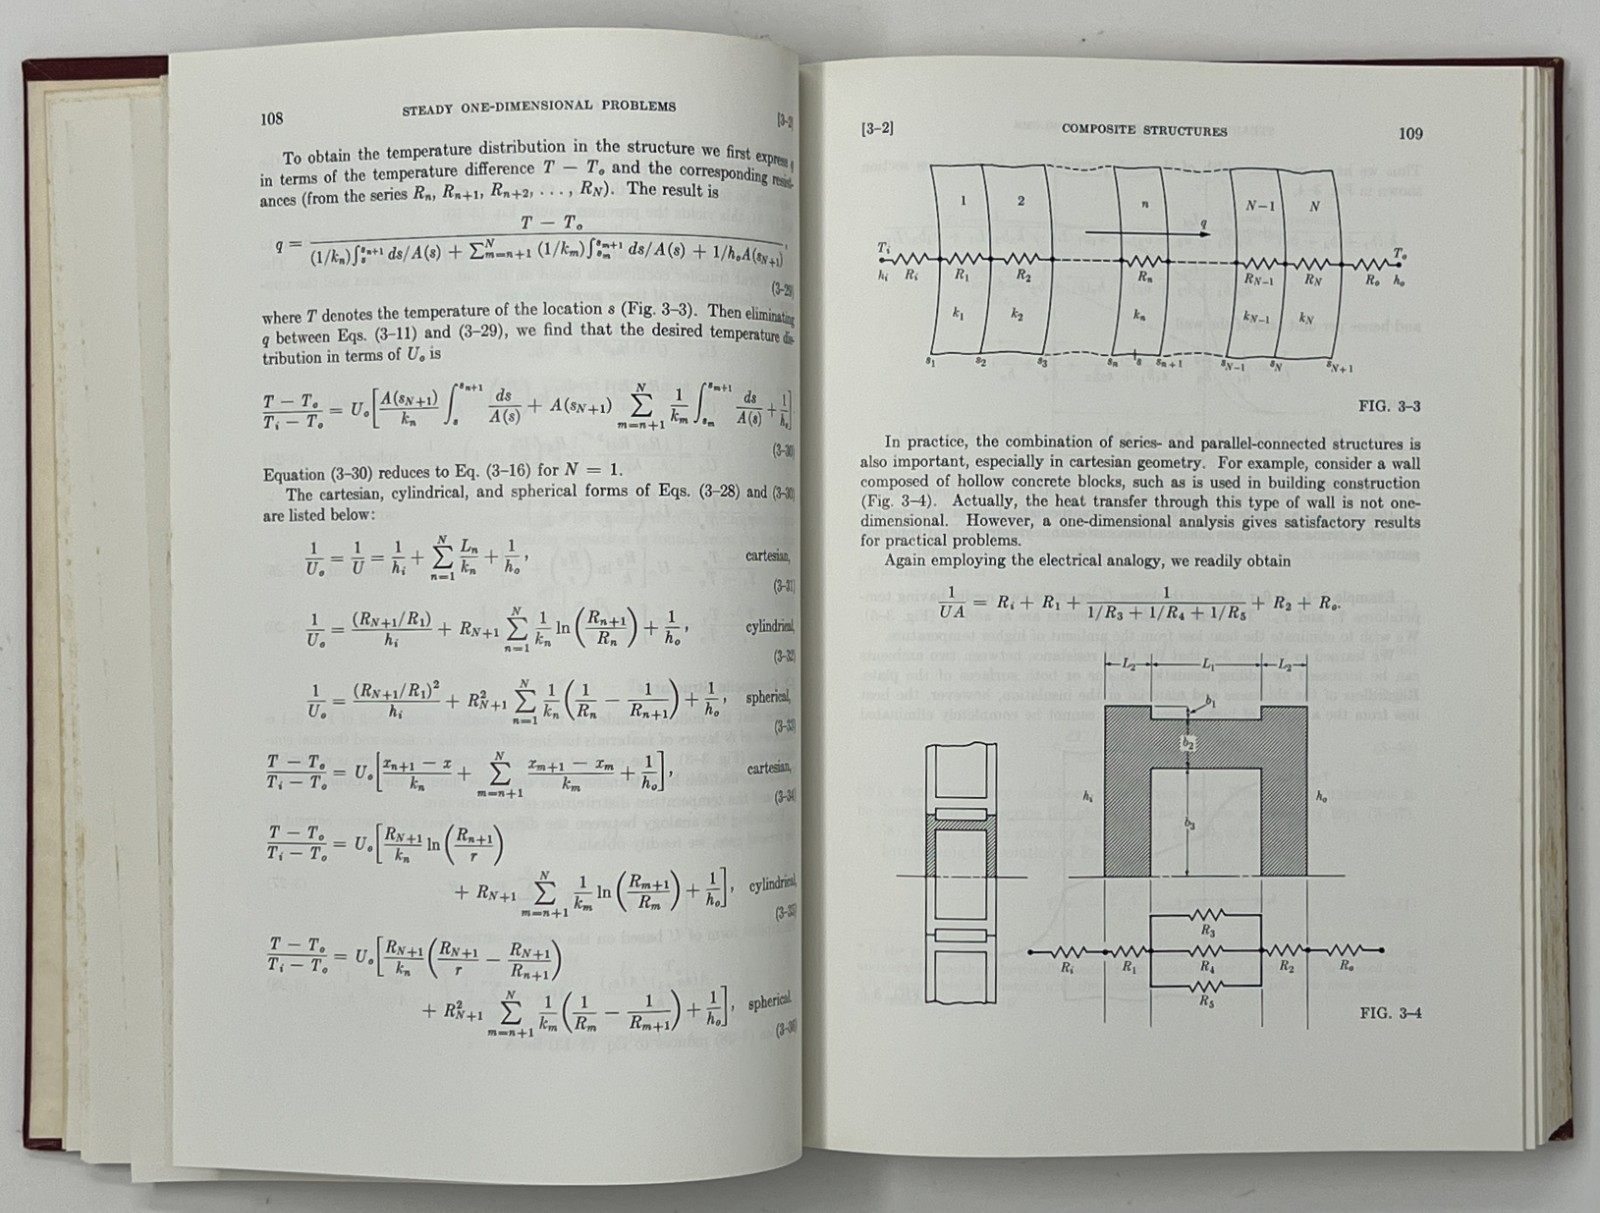 108
STEADY ONE-DIMENSIONAL PROBLEMS
[3-2]
To obtain the temperature distribution in the structure we first express q
in terms of the temperature difference T − Tₒ and the corresponding resist-
ances (from the series Rₙ, Rₙ₊₁, Rₙ₊₂, . . . , R_N). The result is
q = (T − Tₒ) / ((1/kₙ)∫_s^{sₙ₊₁} ds/A(s) + Σ_{m=n+1}^N (1/kₘ)∫_{sₘ}^{sₘ₊₁} ds/A(s) + 1/hₒA(s_{N+1})),
(3-29)
where T denotes the temperature of the location s (Fig. 3-3). Then eliminating
q between Eqs. (3-11) and (3-29), we find that the desired temperature dis-
tribution in terms of Uₒ is
(T − Tₒ)/(Tᵢ − Tₒ) = Uₒ[A(s_{N+1})/kₙ ∫_s^{sₙ₊₁} ds/A(s) + A(s_{N+1}) Σ_{m=n+1}^N 1/kₘ ∫_{sₘ}^{sₘ₊₁} ds/A(s) + 1/hₒ]
(3-30)
Equation (3-30) reduces to Eq. (3-16) for N = 1.
The cartesian, cylindrical, and spherical forms of Eqs. (3-28) and (3-30)
are listed below:
1/Uₒ = 1/U = 1/hᵢ + Σ_{n=1}^N Lₙ/kₙ + 1/hₒ, cartesian,
(3-31)
1/Uₒ = (R_{N+1}/R₁)/hᵢ + R_{N+1} Σ_{n=1}^N 1/kₙ ln(Rₙ₊₁/Rₙ) + 1/hₒ, cylindrical,
(3-32)
1/Uₒ = (R_{N+1}/R₁)²/hᵢ + R²_{N+1} Σ_{n=1}^N 1/kₙ (1/Rₙ − 1/Rₙ₊₁) + 1/hₒ, spherical,
(3-33)
(T − Tₒ)/(Tᵢ − Tₒ) = Uₒ[(xₙ₊₁ − x)/kₙ + Σ_{m=n+1}^N (xₘ₊₁ − xₘ)/kₘ + 1/hₒ], cartesian,
(3-34)
(T − Tₒ)/(Tᵢ − Tₒ) = Uₒ[R_{N+1}/kₙ ln(Rₙ₊₁/r)
+ R_{N+1} Σ_{m=n+1}^N 1/kₘ ln(Rₘ₊₁/Rₘ) + 1/hₒ], cylindrical,
(3-35)
(T − Tₒ)/(Tᵢ − Tₒ) = Uₒ[R_{N+1}/kₙ (R_{N+1}/r − R_{N+1}/Rₙ₊₁)
+ R²_{N+1} Σ_{m=n+1}^N 1/kₘ (1/Rₘ − 1/Rₘ₊₁) + 1/hₒ], spherical.
(3-36)
[3-2]
COMPOSITE STRUCTURES
109
1 2 n N−1 N
q
Tᵢ Tₒ
hᵢ Rᵢ R₁ R₂ Rₙ R_{N−1} R_N Rₒ hₒ
k₁ k₂ kₙ k_{N−1} k_N
s₁ s₂ s₃ sₙ s sₙ₊₁ s_{N−1} s_N s_{N+1}
FIG. 3-3
In practice, the combination of series- and parallel-connected structures is
also important, especially in cartesian geometry. For example, consider a wall
composed of hollow concrete blocks, such as is used in building construction
(Fig. 3-4). Actually, the heat transfer through this type of wall is not one-
dimensional. However, a one-dimensional analysis gives satisfactory results
for practical problems.
Again employing the electrical analogy, we readily obtain
1/UA = Rᵢ + R₁ + 1/(1/R₃ + 1/R₄ + 1/R₅) + R₂ + Rₒ.
L₂ L₁ L₂
b₁
b₂
hᵢ hₒ
b₃
R₃
Rᵢ R₁ R₄ R₂ Rₒ
R₅
FIG. 3-4